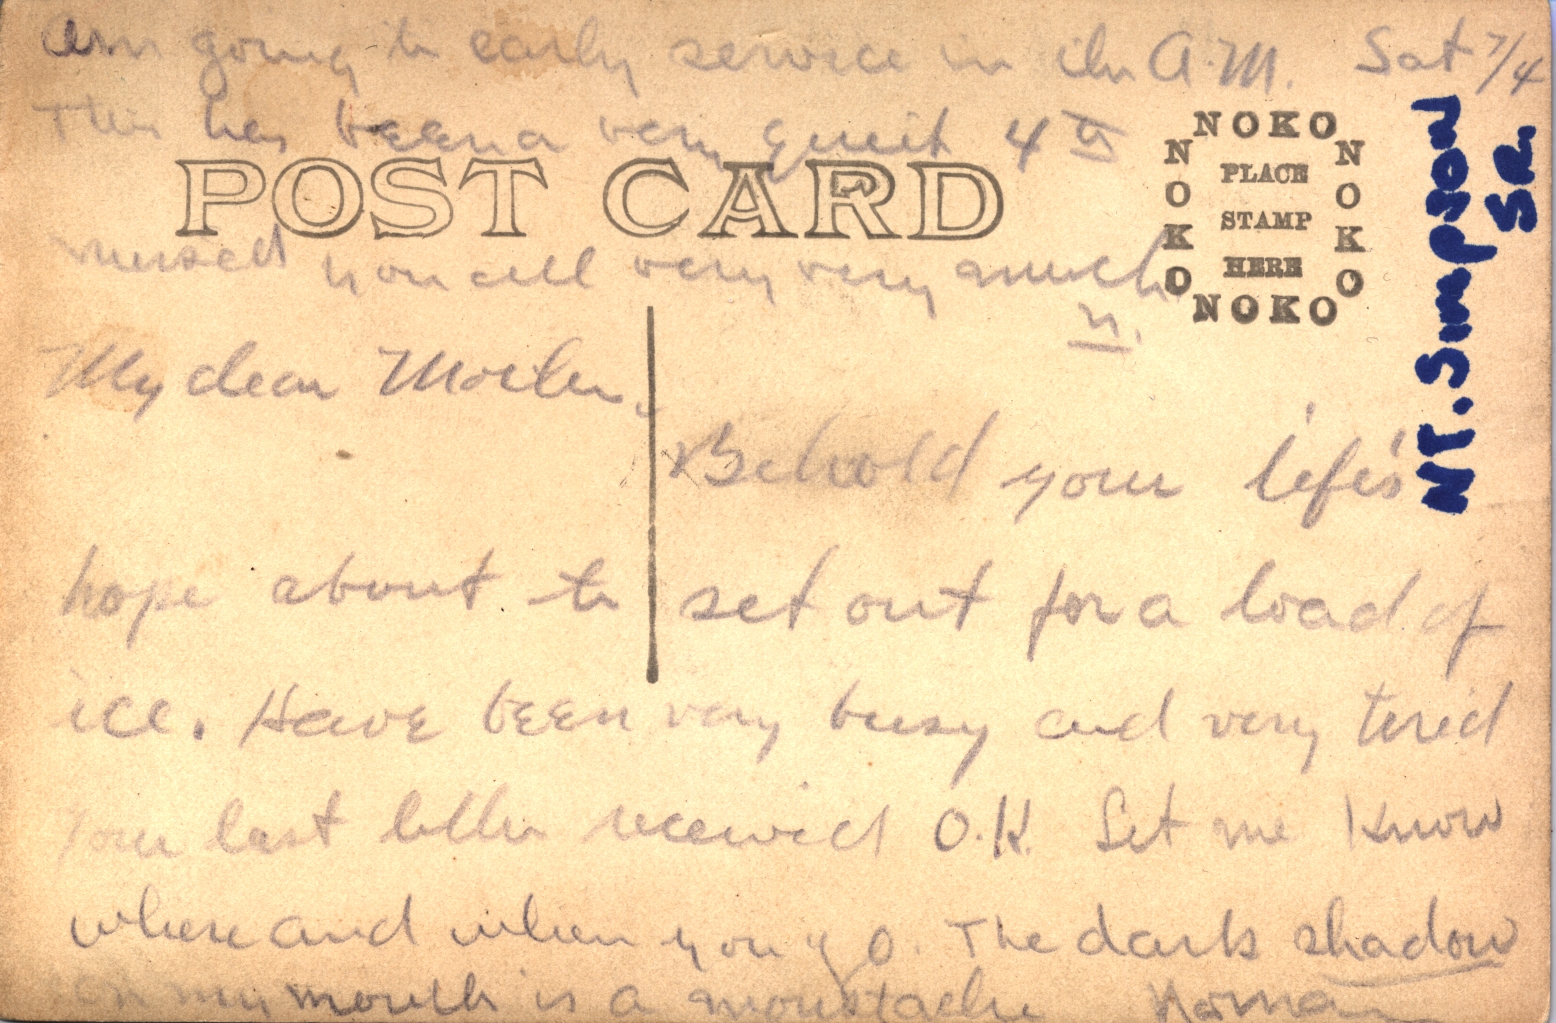 Am going to early service in the A.M. Sat 7/4
This has been a very queit 4th
POST CARD
missed you all very very much
N.
NOKO
NOKO
NOKO
NOKO
PLACE
STAMP
HERE
N.T. Simpson
Sr.
My dear Mother,
Behold your life's
hope about to set out for a load of
ice. Have been very busy and very tired
Your last letter received O.K. Let me know
where and when you go. The dark shadow
on my mouth is a moustache Norman